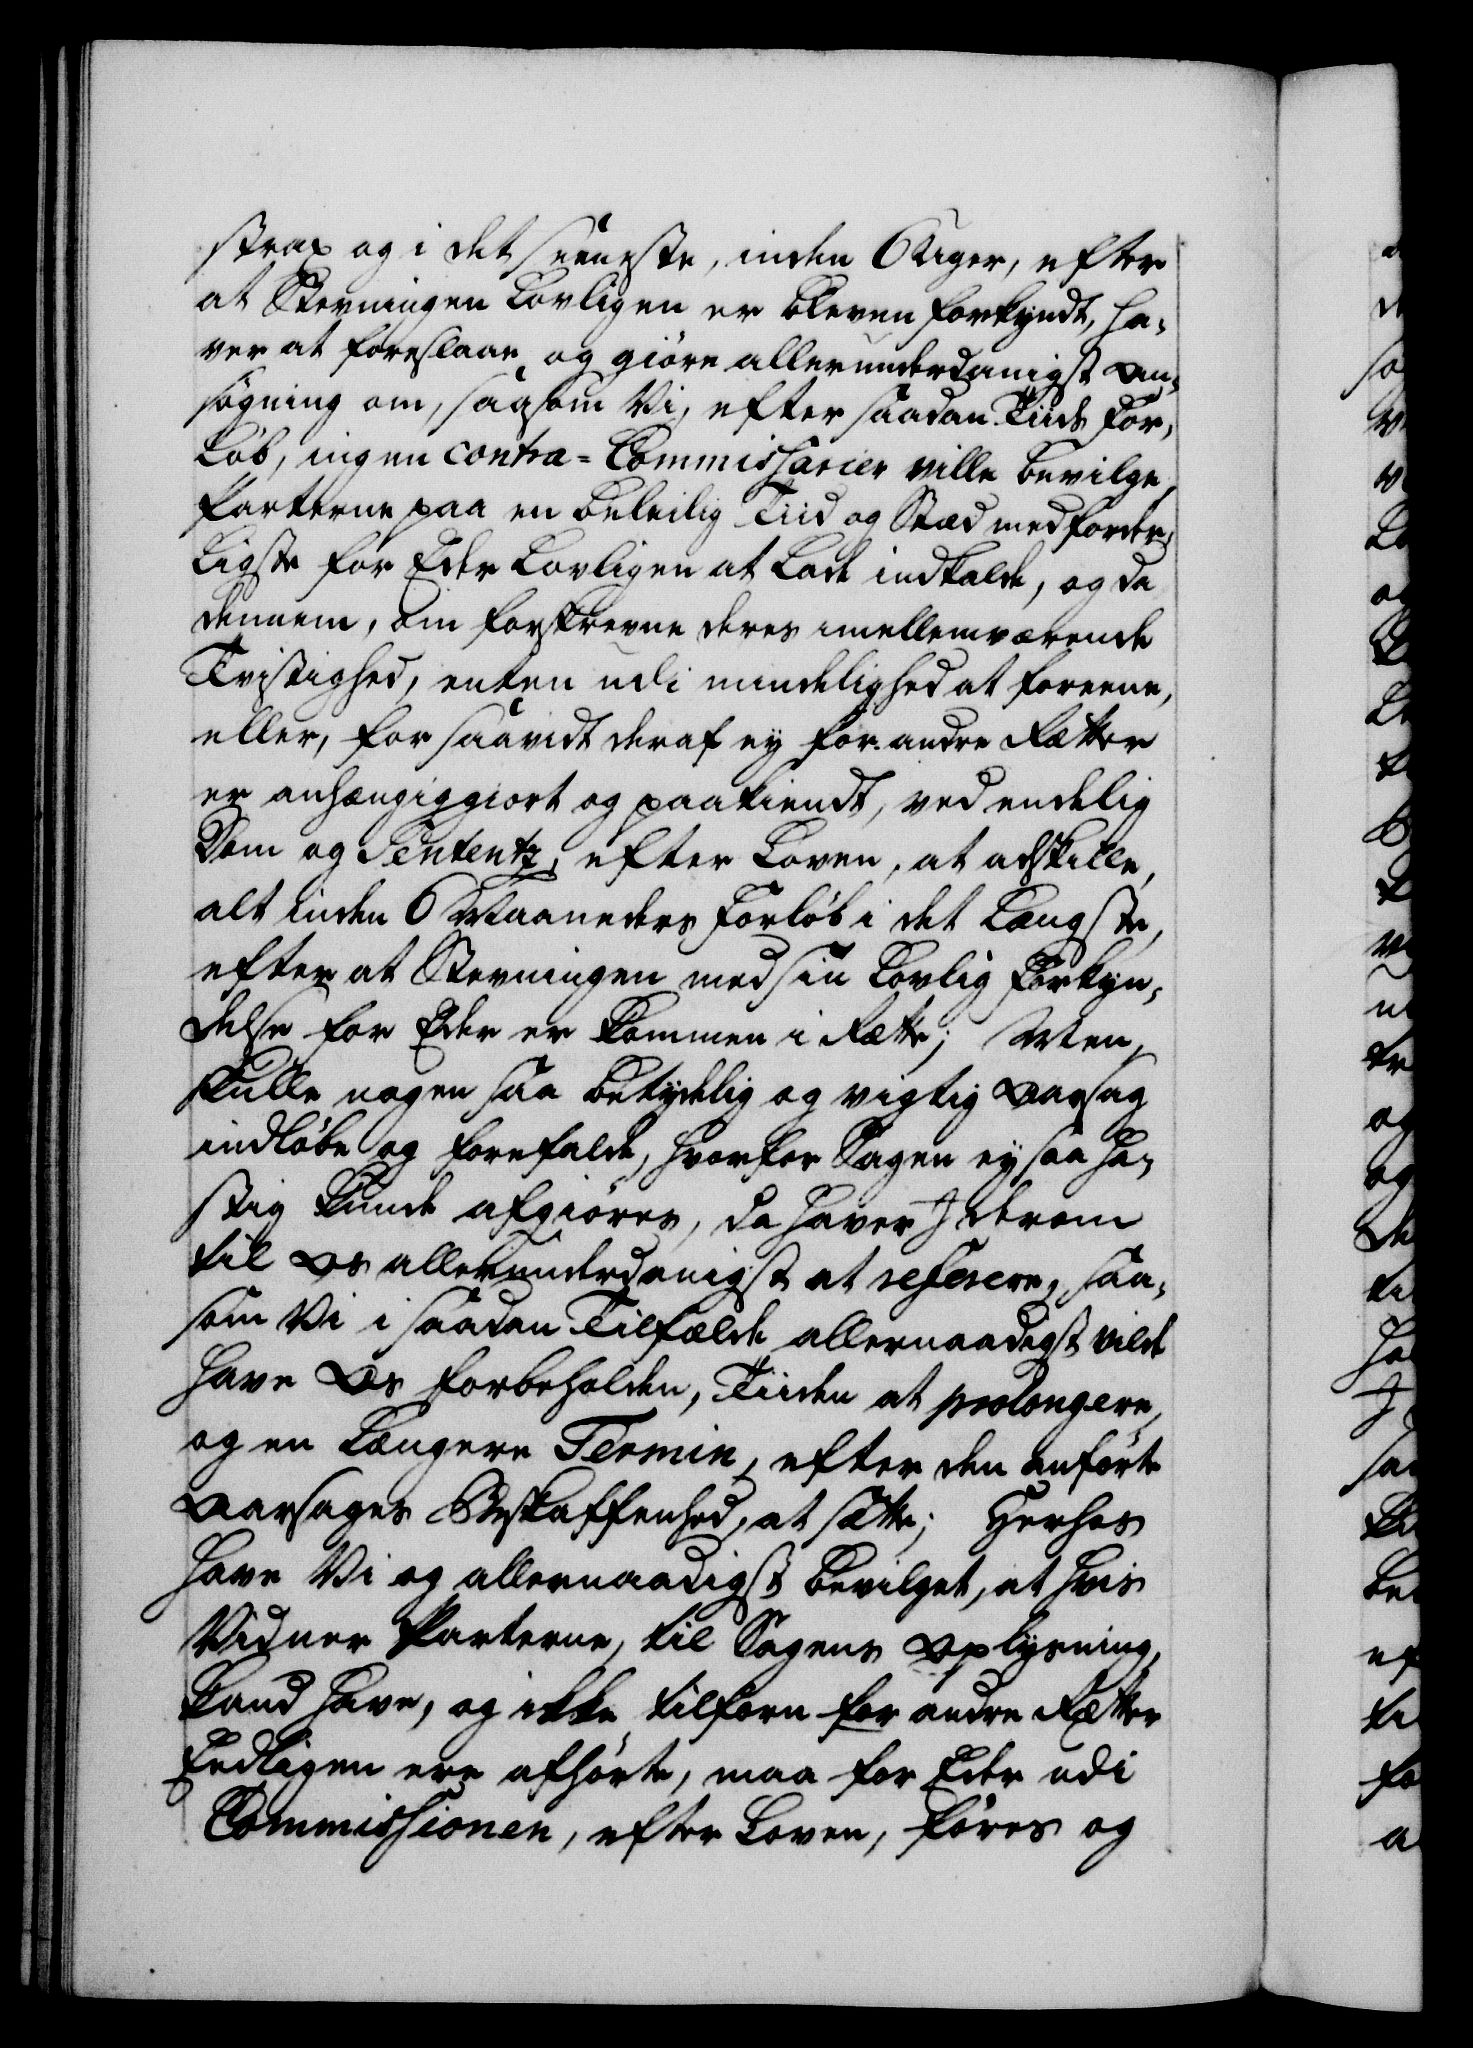 strax og i det seeneste, inden 6 Uger, efter
at Stevningen Lovligen er bleven forkyndt, ha-
ver at foreslaae og giøre allerunderdanigst An-
søgning om, saasom Vi, efter saadan Tiids For-
løb, ingen contra-Commissarier ville bevilge,
Parterne paa en beleilig Tiid og Stæd med forder-
ligste for Eder Lovligen at lade indkalde, og da
dennem, om forskrevne deres imellemværende
Tvistighed, enten udi mindelighed at foreene,
eller, for saavidt deraf ey for andre Rætter
er anhængiggiort og paakiendt, ved endelig
Dom og Sententz, efter Loven, at adskille,
alt inden 6 Maaneders Forløb i det Længste,
efter at Stevningen med sin Lovlig Forkyn-
delse for Eder er kommen i Rætte; Men,
skulle nogen saa betydelig og vigtig Aarsag
indløbe og forefalde, hvorfor Sagen ey saa ha-
stig kunde afgiøres, da haver I derom
til Os allerunderdanigst at referere, saa-
som Vi i saadan Tilfælde allernaadigst vilde
have Os forbeholden, Tiiden at prolongere,
og en Længere Termin, efter den anførte
Aarsages Beskaffenhed, at sætte; Herhos
have Vi og allernaadigst bevilget, at hvis
Vidner Parterne, til Sagens Oplysning,
kand have, og ikke tilforn for andre Rætter
Eedligen ere afhørte, maa for Eder udi
Commissionen, efter Loven, føres og